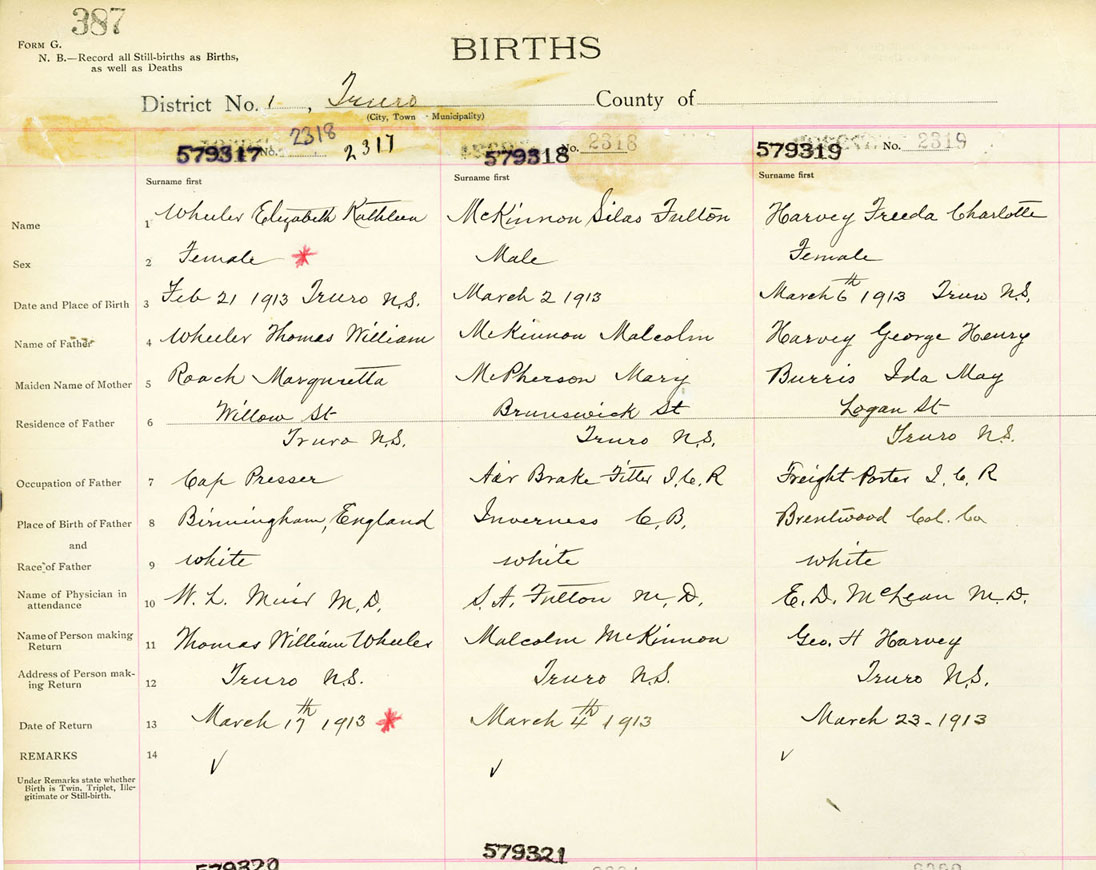 387
FORM G.
N. B.—Record all Still-births as Births,
as well as Deaths
BIRTHS
District No. 1, Truro County of
(City, Town Municipality)
579317 No. 2318 2317 579318 No. 2318 579319 No. 2319
Surname first Surname first Surname first
Name 1 Wheeler Elizabeth Kathleen McKinnon Silas Fulton Harvey Freeda Charlotte
Sex 2 Female Male Female
Date and Place of Birth 3 Feb 21 1913 Truro N.S. March 2 1913 March 6th 1913 Truro N.S.
Name of Father 4 Wheeler Thomas William McKinnon Malcolm Harvey George Henry
Maiden Name of Mother 5 Roach Marguretta McPherson Mary Burris Ida May
Residence of Father 6 Willow St Brunswick St Logan St
Truro N.S. Truro N.S. Truro N.S.
Occupation of Father 7 Cap Presser Air Brake Fitter I.C.R Freight Porter I.C.R
Place of Birth of Father 8 Birmingham, England Inverness C.B. Brentwood Col. Co
and
Race of Father 9 white white white
Name of Physician in
attendance 10 W. L. Muir M.D. S.A. Fulton M.D. E.D. McLean M.D.
Name of Person making
Return 11 Thomas William Wheeler Malcolm McKinnon Geo. H Harvey
Address of Person mak-
ing Return 12 Truro N.S. Truro N.S. Truro N.S.
Date of Return 13 March 17th 1913 March 4th 1913 March 23-1913
REMARKS 14
Under Remarks state whether
Birth is Twin, Triplet, Ille-
gitimate or Still-birth.
579320 579321